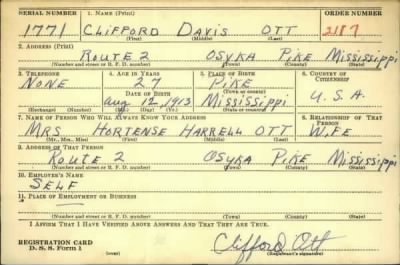 SERIAL NUMBER 1. NAME (Print) ORDER NUMBER
1771 CLIFFORD DAVIS OTT 2187
(First) (Middle) (Last)
2. ADDRESS (Print)
ROUTE 2 OSYKA PIKE MISSISSIPPI
(Number and street or R. F. D. number) (Town) (County) (State)
3. TELEPHONE 4. AGE IN YEARS 5. PLACE OF BIRTH 6. COUNTRY OF
CITIZENSHIP
NONE 27 PIKE
DATE OF BIRTH (Town or county)
Aug 12, 1913 MISSISSIPPI U.S.A.
(Exchange) (Number) (Mo.) (Day) (Yr.) (State or country)
7. NAME OF PERSON WHO WILL ALWAYS KNOW YOUR ADDRESS 8. RELATIONSHIP OF THAT
PERSON
MRS HORTENSE HARRELL OTT WIFE
(Mr., Mrs., Miss) (First) (Middle) (Last)
9. ADDRESS OF THAT PERSON
ROUTE 2 OSYKA PIKE MISSISSIPPI
(Number and street or R. F. D. number) (Town) (County) (State)
10. EMPLOYER'S NAME
SELF
11. PLACE OF EMPLOYMENT OR BUSINESS
(Number and street or R. F. D. number) (Town) (County) (State)
I AFFIRM THAT I HAVE VERIFIED ABOVE ANSWERS AND THAT THEY ARE TRUE.
REGISTRATION CARD
D. S. S. Form 1
Clifford Ott
(Registrant's signature)